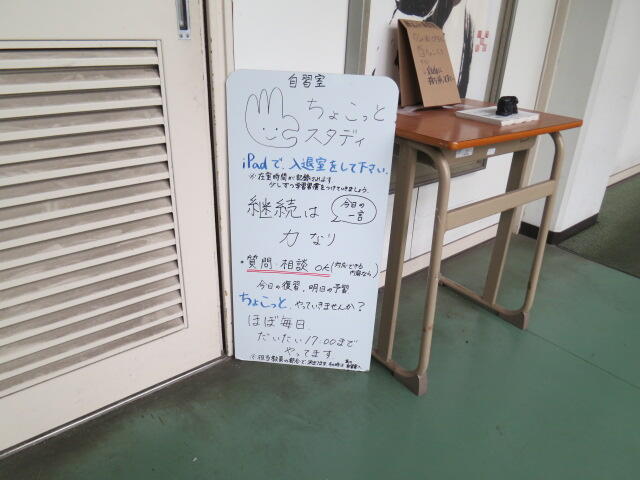 自習室
ちょこっと
スタディ
iPadで、入退室をして下さい。
※在室時間が記録されます
少しずつ学習習慣をつけていきましょう。
継続は
今日の
一言
力なり
・質問・相談 OK(対応できる
内容なら)
今日の復習、明日の予習
ちょこっと、やっていきませんか？
ほぼ毎日、
だいたい17:00まで
やってます
※担当教員の都合で